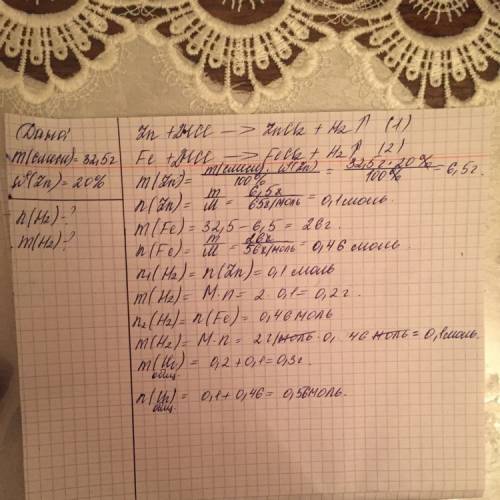 Дано:
m(смеси) = 32,5г
W(Zn) = 20%
n(H2) - ?
m(H2) - ?
Zn + 2HCl —> ZnCl2 + H2↑ (1)
Fe + 2HCl —> FeCl2 + H2↑ (2)
m(Zn) = m(смеси) · W(Zn) / 100% = 32,5г · 20% / 100% = 6,5г.
n(Zn) = m / M = 6,5г / 65г/моль = 0,1 моль.
m(Fe) = 32,5 - 6,5 = 26г.
n(Fe) = m / M = 26г / 56г/моль = 0,46 моль.
n1(H2) = n(Zn) = 0,1 моль
m(H2) = M·n = 2 · 0,1 = 0,2г.
n2(H2) = n(Fe) = 0,46 моль
m(H2) = M·n = 2г/моль · 0, 46 моль = 0,1 моль.
m(H2) общ. = 0,2 + 0,1 = 0,3г.
n(H2) общ. = 0,1 + 0,46 = 0,56 моль.